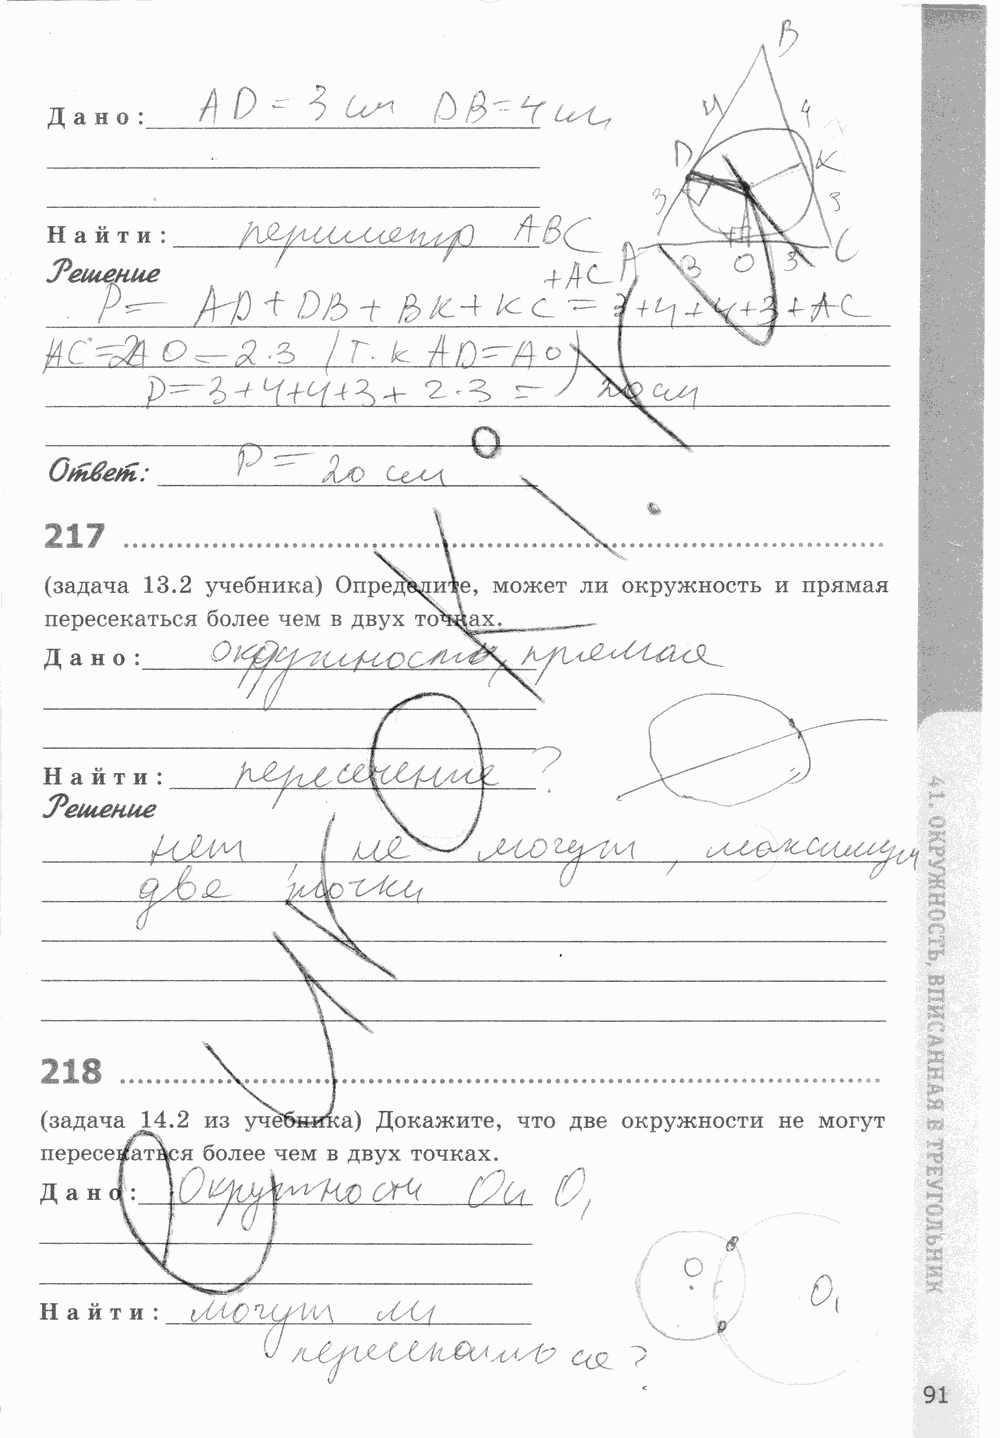 Дано: AD = 3 см DB = 4 см
Найти: периметр ABC
Решение
+AC
P = AD + DB + BK + KC = 3+4+4+3+AC
AC = 2AO = 2·3 (т.к AD = AO)
P = 3+4+4+3+2·3 = 20 см
Ответ: P = 20 см
B
4
4
D
K
3
3
A
3
O
3
C
217
(задача 13.2 учебника) Определите, может ли окружность и прямая
пересекаться более чем в двух точках.
Дано: окружность, прямая
Найти: пересечение?
Решение
нет, не могут, максимум
две точки
218
(задача 14.2 из учебника) Докажите, что две окружности не могут
пересекаться более чем в двух точках.
Дано: Окружности O и O1
Найти: могут ли
пересекаться?
O
O1
41. ОКРУЖНОСТЬ, ВПИСАННАЯ В ТРЕУГОЛЬНИК
91